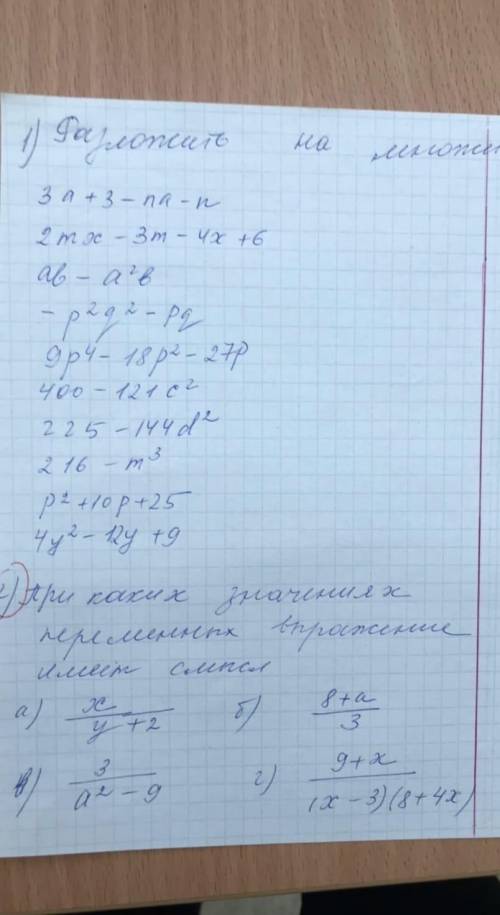 1) Разложить на множи
3a + 3 - na - n
2mx - 3m - 4x + 6
ab - a²b
- p²q² - pq
9p⁴ - 18p² - 27p
400 - 121c²
225 - 144d²
216 - m³
p² + 10p + 25
4y² - 12y + 9
2) При каких значениях
переменных выражение
имеет смысл
а) x / (y + 2) б) (8 + a) / 3
в) 3 / (a² - 9) г) (9 + x) / ((x - 3)(8 + 4x))